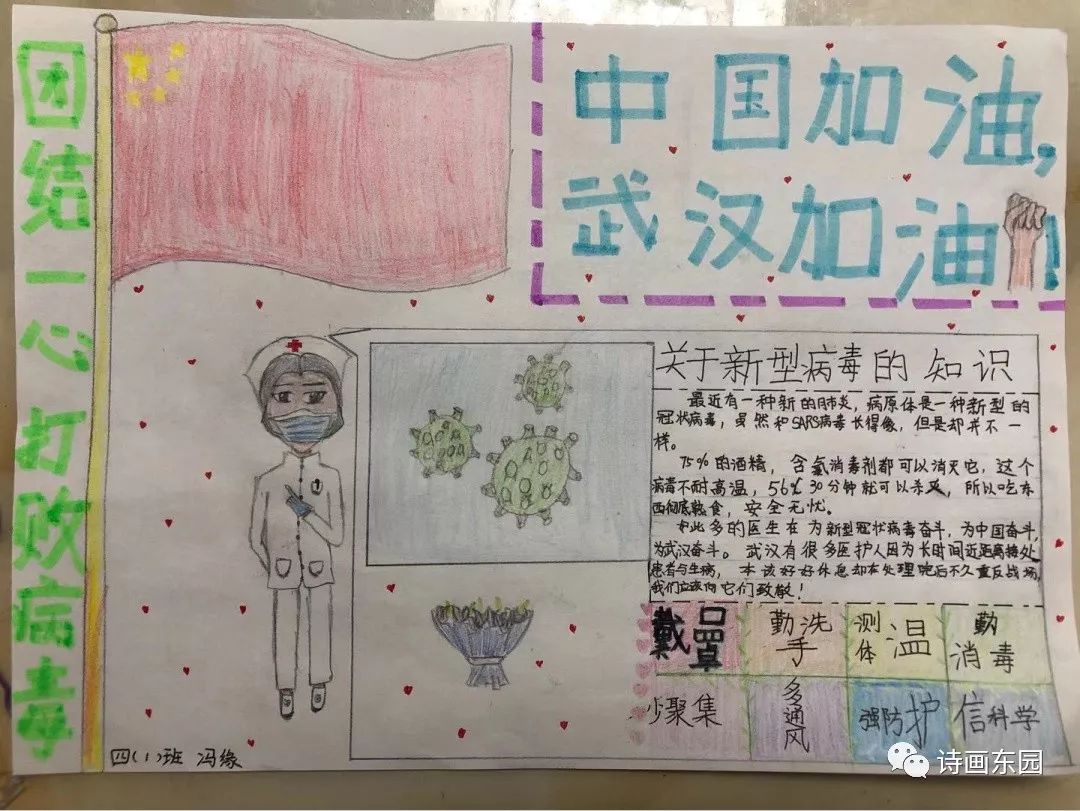 团结一心 打败病毒
中国加油,
武汉加油!
关于新型病毒的知识
最近有一种新的肺炎，病原体是一种新型的
冠状病毒，虽然和SARS病毒长得像，但是却并不一
样。
75%的酒精，含氯消毒剂都可以消灭它，这个
病毒不耐高温，56℃30分钟就可以杀灭，所以吃东
西彻底熟食，安全无忧。
如此多的医生在为新型冠状病毒奋斗，为中国奋斗，
为武汉奋斗。武汉有很多医护人因为长时间近距离接处
患者与生病，本该好好休息却在处理完后不久重反战场，
我们应该向它们致敬！
戴口罩
勤洗手
测体温
勤消毒
少聚集
多通风
强防护
信科学
四(1)班 冯缘
诗画东园